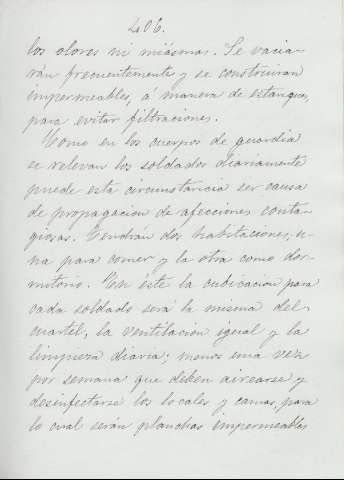 406.
los olores ni miasmas. Se vacia-
rán frecuentemente y se construiran
impermeables, á manera de estanques,
para evitar filtraciones.
Como en los cuerpos de guardia
se relevan los soldados diariamente
puede esta circunstancia ser causa
de propagacion de afecciones conta-
giosas. Tendrán dos habitaciones, u-
na para comer y la otra como dor-
mitorio. En éste la cubicación para
cada soldado será la misma del
cuartel, la ventilación igual y la
limpieza diaria; menos una vez
por semana que deben airearse y
desinfectarse los locales y camas, para
lo cual serán planchas impermeables